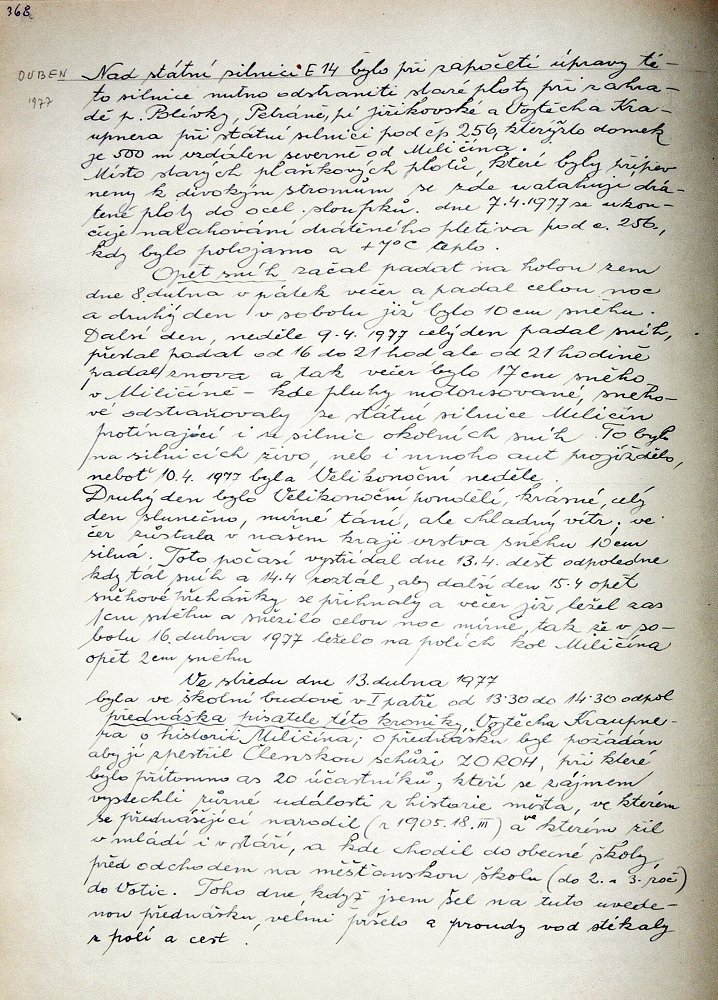 368
DUBEN
1977
Nad státní silnicí E 14 bylo při započetí úpravy té-
to silnice nutno odstraniti staré ploty při zahra-
dě p. Polívky, Petraně, pí Jiříkovské a Vojtěcha Kra-
upnera při státní silnici pod čp 256, kterýžto domek
je 500 m vzdálen severně od Miličína.
Místo starých plaňkových plotů, které byly připev
něny k divokým stromům se zde natahují drá-
těné ploty do ocel. sloupků. dne 7.4.1977 se ukon-
čuje natahování drátěného pletiva pod č. 256,
kdy bylo polojasno a +7°C teplo.
Opět sníh začal padat na holou zem
dne 8 dubna v pátek večer a padal celou noc
a druhý den v sobotu již bylo 10 cm sněhu.
Další den, neděle 9.4. 1977 celý den padal sníh,
přestal padat od 16 do 21 hod ale od 21 hodině
padal znova a tak večer bylo 17 cm sněho
v Miličíně - kde pluhy motorisované, sněho-
vé odstraňovaly se státní silnice Miličín
protínající i se silnic okolních sníh. To bylo
na silnicích živo, neb i mnoho aut projíždělo,
neboť 10.4. 1977 byla Velikonoční neděle.
Druhý den bylo Velikonoční pondělí, krásné, celý
den slunečno, mírné tání, ale chladný vítr, ve
čer zůstala v našem kraji vrstva sněhu 10 cm
silná. Toto počasí vystřídal dne 13.4. déšt odpoledne
kdy tál sníh a 14.4 roztál, aby další den 15.4 opět
sněhové přeháňky se přihnaly a večer již ležel zas
1 cm sněhu a sněžilo celou noc mírně, tak že v so-
botu 16. dubna 1977 leželo na polích kol Miličína
opět 2 cm sněhu
Ve středu dne 13. dubna 1977
byla ve školní budově v I patře od 13.30 do 14.30 odpol
přednáška pisatele této kroniky Vojtěcha Kraupne-
ra o historii Miličína; o přednášku byl požádán
aby jí zpestřil Členskou schůzi ZO ROH, při které
bylo přítomno as 20 účastníků, kteří se zájmem
vyslechli různé události z historie města, ve kterém
se přednášející narodil (r 1905. 18. III) a ve kterém žil
v mládí i v stáří, a kde chodil do obecné školy,
před odchodem na měšťanskou školu (do 2. a 3. roč)
do Votic. Toho dne, když jsem šel na tuto uvede-
nou přednášku, velmi pršelo a proudy vod stékaly
z polí a cest.